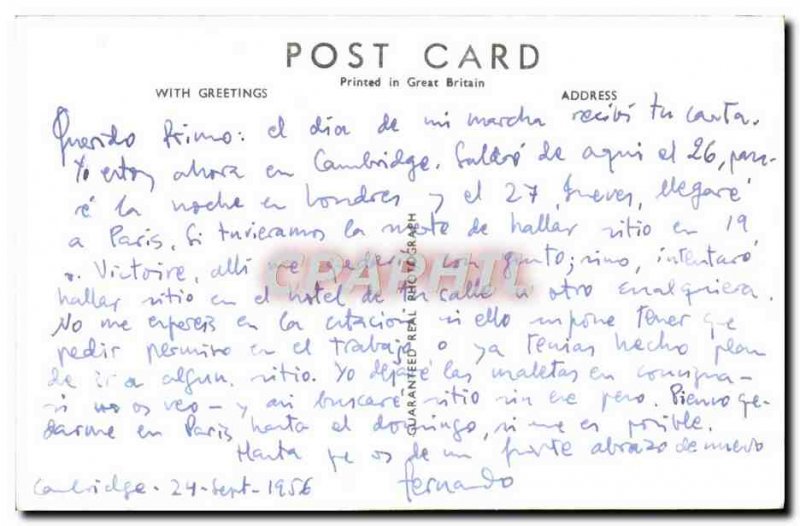 POST CARD
Printed in Great Britain
WITH GREETINGS
ADDRESS
Querido Primo: el día de mi marcha recibí tu carta.
Yo estoy ahora en Cambridge. Saldré de aquí el 26, pasa-
ré la noche en Londres y el 27, Jueves, llegaré
a París. Si tuvieramos la suerte de hallar sitio en 19
r. Victoire, allí me quedaré con gusto; sino, intentaré
hallar sitio en el hotel de tu calle u otro cualquiera.
No me espereis en la estacion si ello supone tener que
pedir permiso en el trabajo o ya tenias hecho plan
de ir a algun sitio. Yo dejaré las maletas en consigna-
si no os veo - y asi buscaré sitio sin ese peso. Pienso que-
darme en París hasta el domingo, si me es posible.
Hasta os de un fuerte abrazo de nuevo
Fernando
Cambridge - 24 - Sept - 1956
GUARANTEED REAL PHOTOGRAPH
CPAPHIL